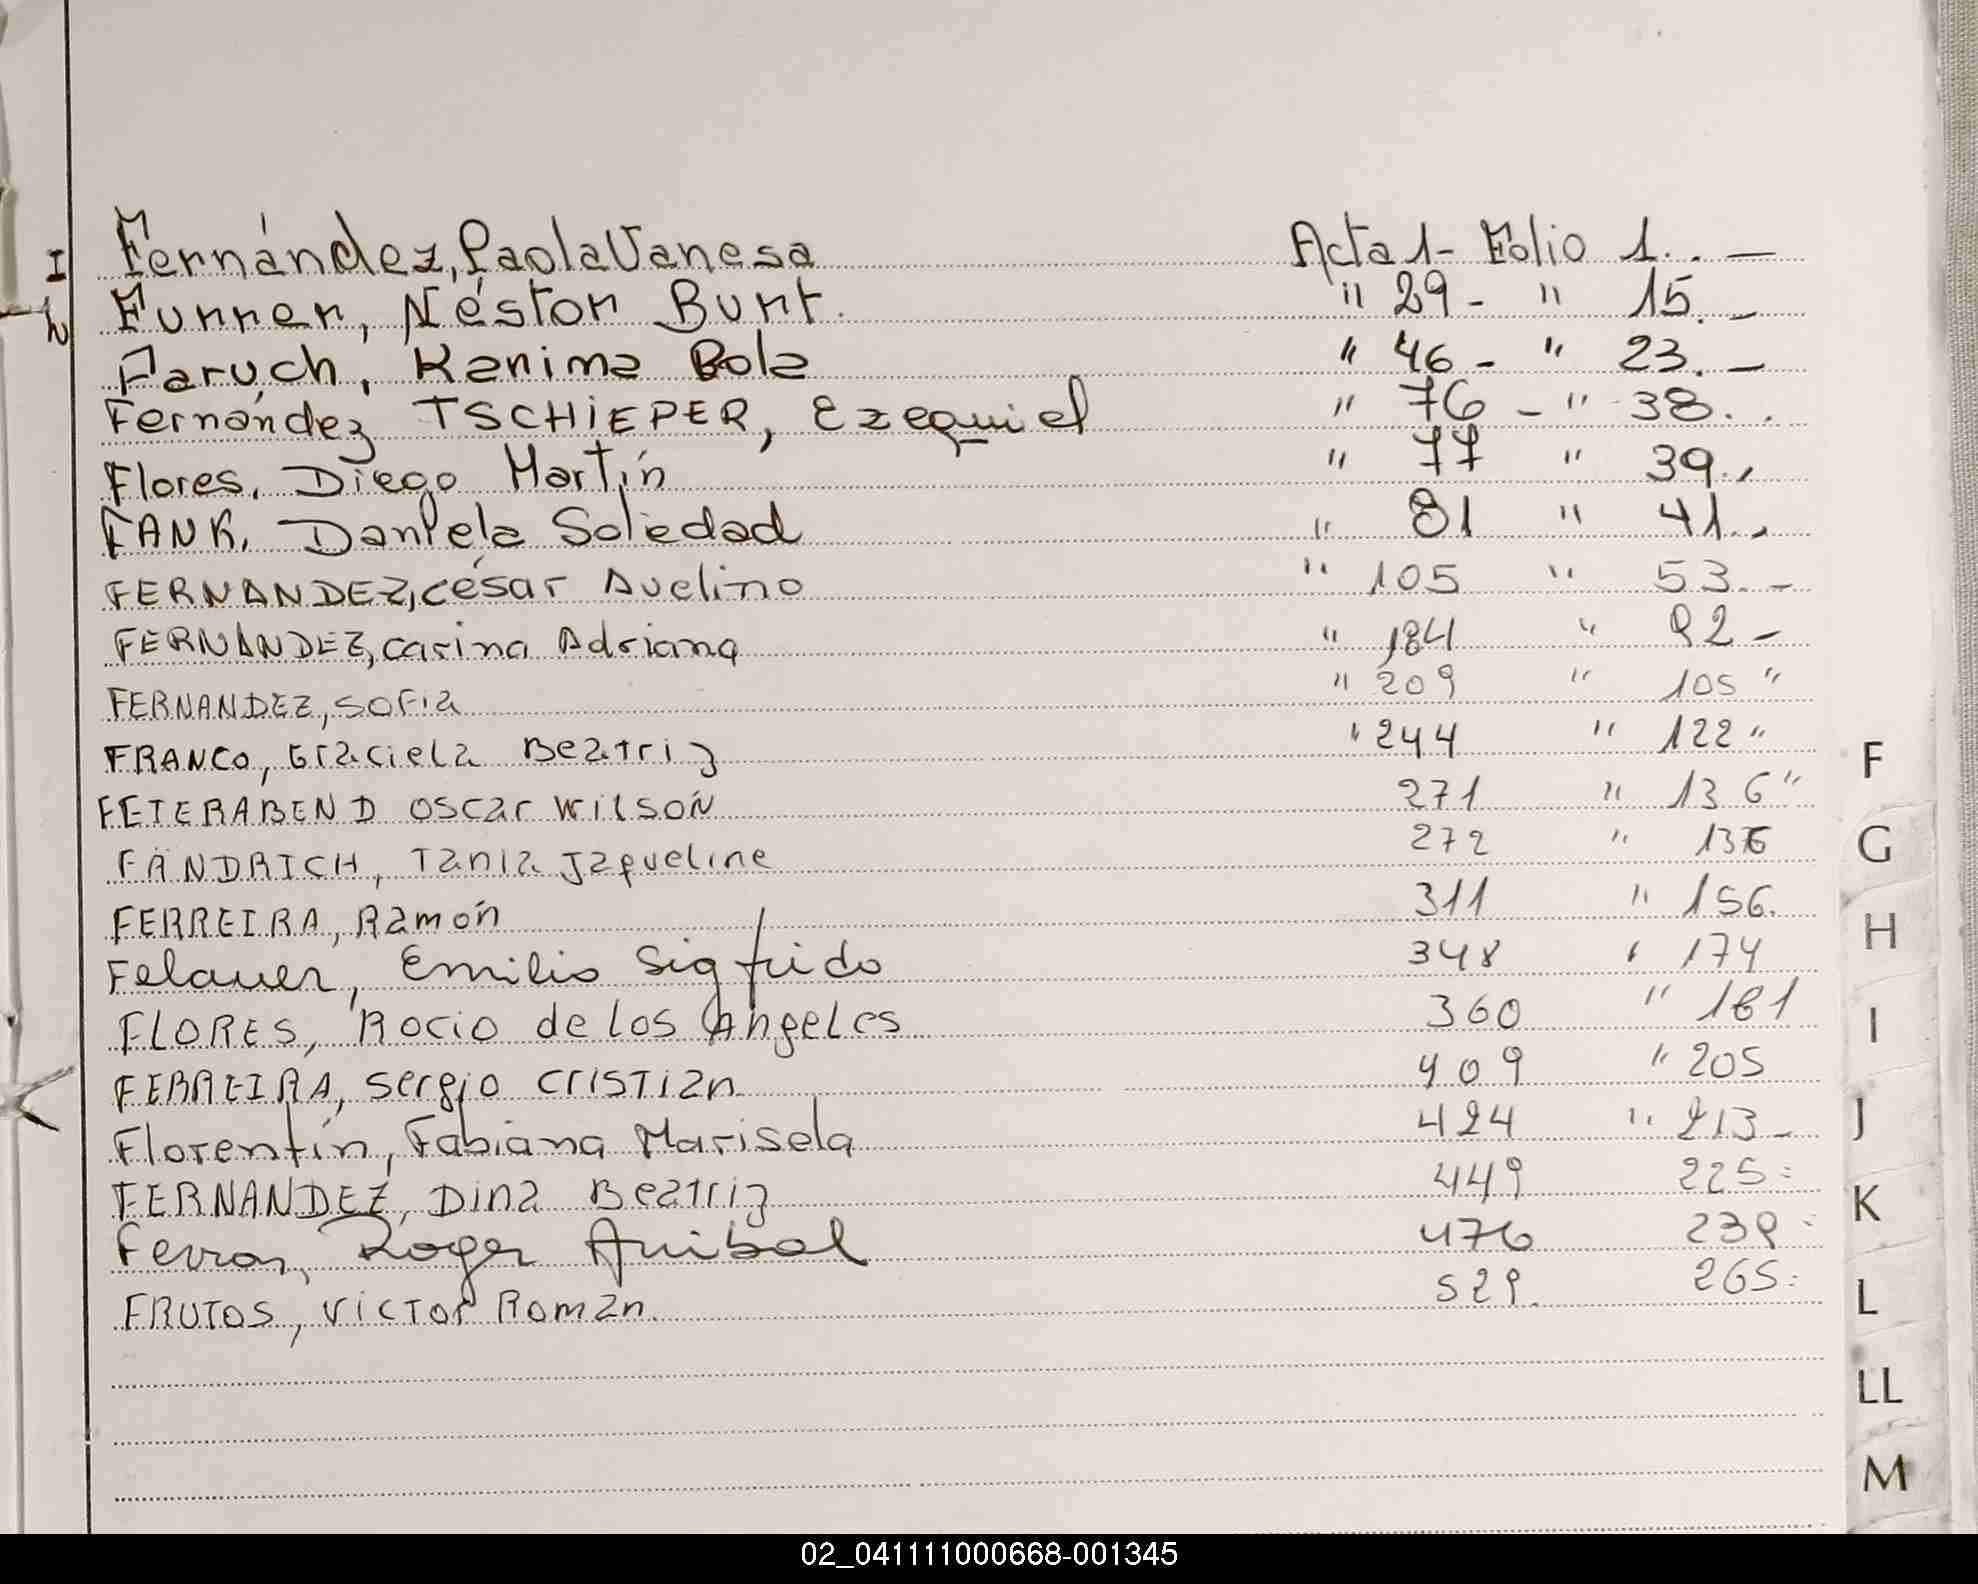 I Fernández, Paola Vanesa Acta 1- Folio 1. . —
Furrer, Néstor Burt. " 29 - " 15. —
Faruch, Karima Bola " 46 - " 23. —
Fernández TSCHIEPER, Ezequiel " 76 - " 38. .
Flores, Diego Martín " 77 " 39.,
FANK, Daniela Soledad " 81 " 41.,
FERNANDEZ, César Avelino " 105 " 53. -
FERNÁNDEZ, Carina Adriana " 184 " 92 -
FERNANDEZ, Sofia " 209 " 105 "
FRANCO, Graciela Beatriz " 244 " 122 "
F
FEIERABEND Oscar Wilson 271 " 136 "
FÄNDRICH, Tania Jaqueline 272 " 136
G
FERREIRA, Ramón 311 " 156.
H
Felauer, Emilio Sigfrido 348 " 174
FLORES, Rocio de los Angeles 360 " 181
I
FERREIRA, Sergio Cristian 409 " 205
Florentín, Fabiana Marisela 424 " 213 -
J
FERNANDEZ, Dina Beatriz 449 225:
K
Roger Anibal 476 239:
FRUTOS, Victor Roman. 529. 265:
L
LL
M
02_041111000668-001345